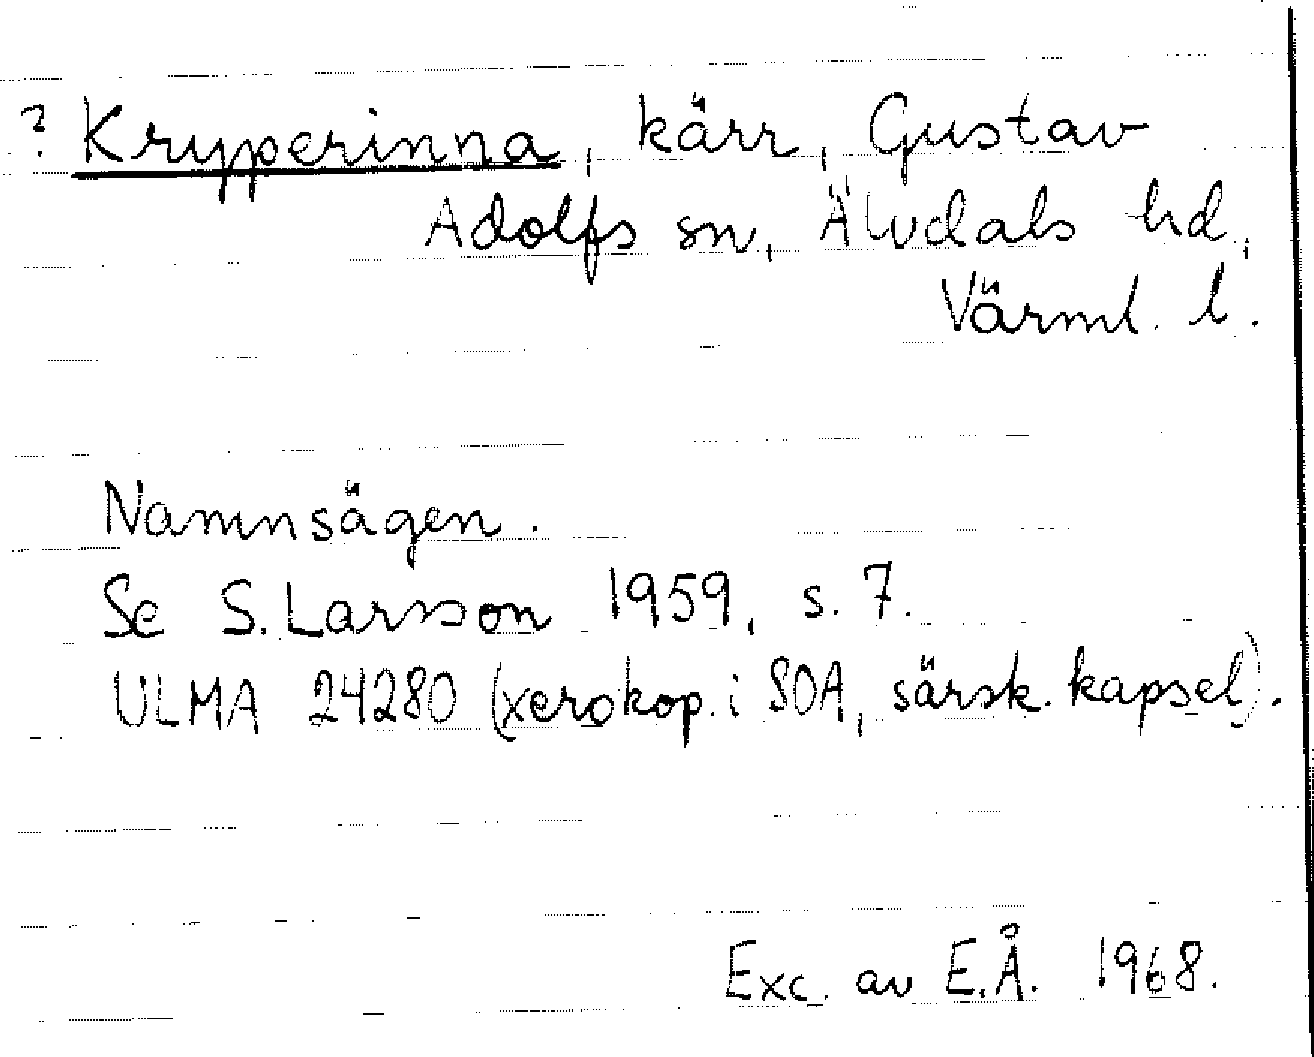 ? Krypperinna, kärr, Gustav
Adolfs sn, Älvdals hd,
Värml. l.
Namnsägen.
Se S. Larsson 1959, s. 7.
ULMA 24280 (xerokop. i SOA, särsk. kapsel).
Exc. av E.Å. 1968.